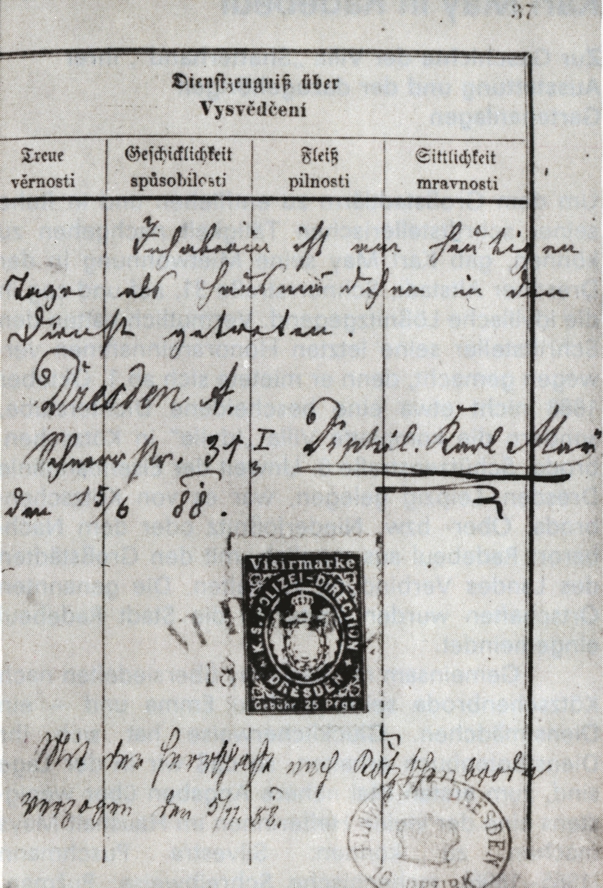 37
Dienstzeugniß über
Vysvědčení
Treue Geschicklichkeit Fleiß Sittlichkeit
věrnosti spůsobilosti pilnosti mravnosti
Inhaberin ist am heutigen
Tage als Hausmädchen in den
Dienst getreten
Dresden A.
Schnorrstr. 31 I Karl May
den 5/6 88.
Visirmarke
K.S. POLIZEI-DIRECTION
DRESDEN
Gebühr 25 Pfge
Mit der Herrschaft nach Kötzschenbroda
verzogen den 5/11. 88.
DRESDEN
10 BEZIRK